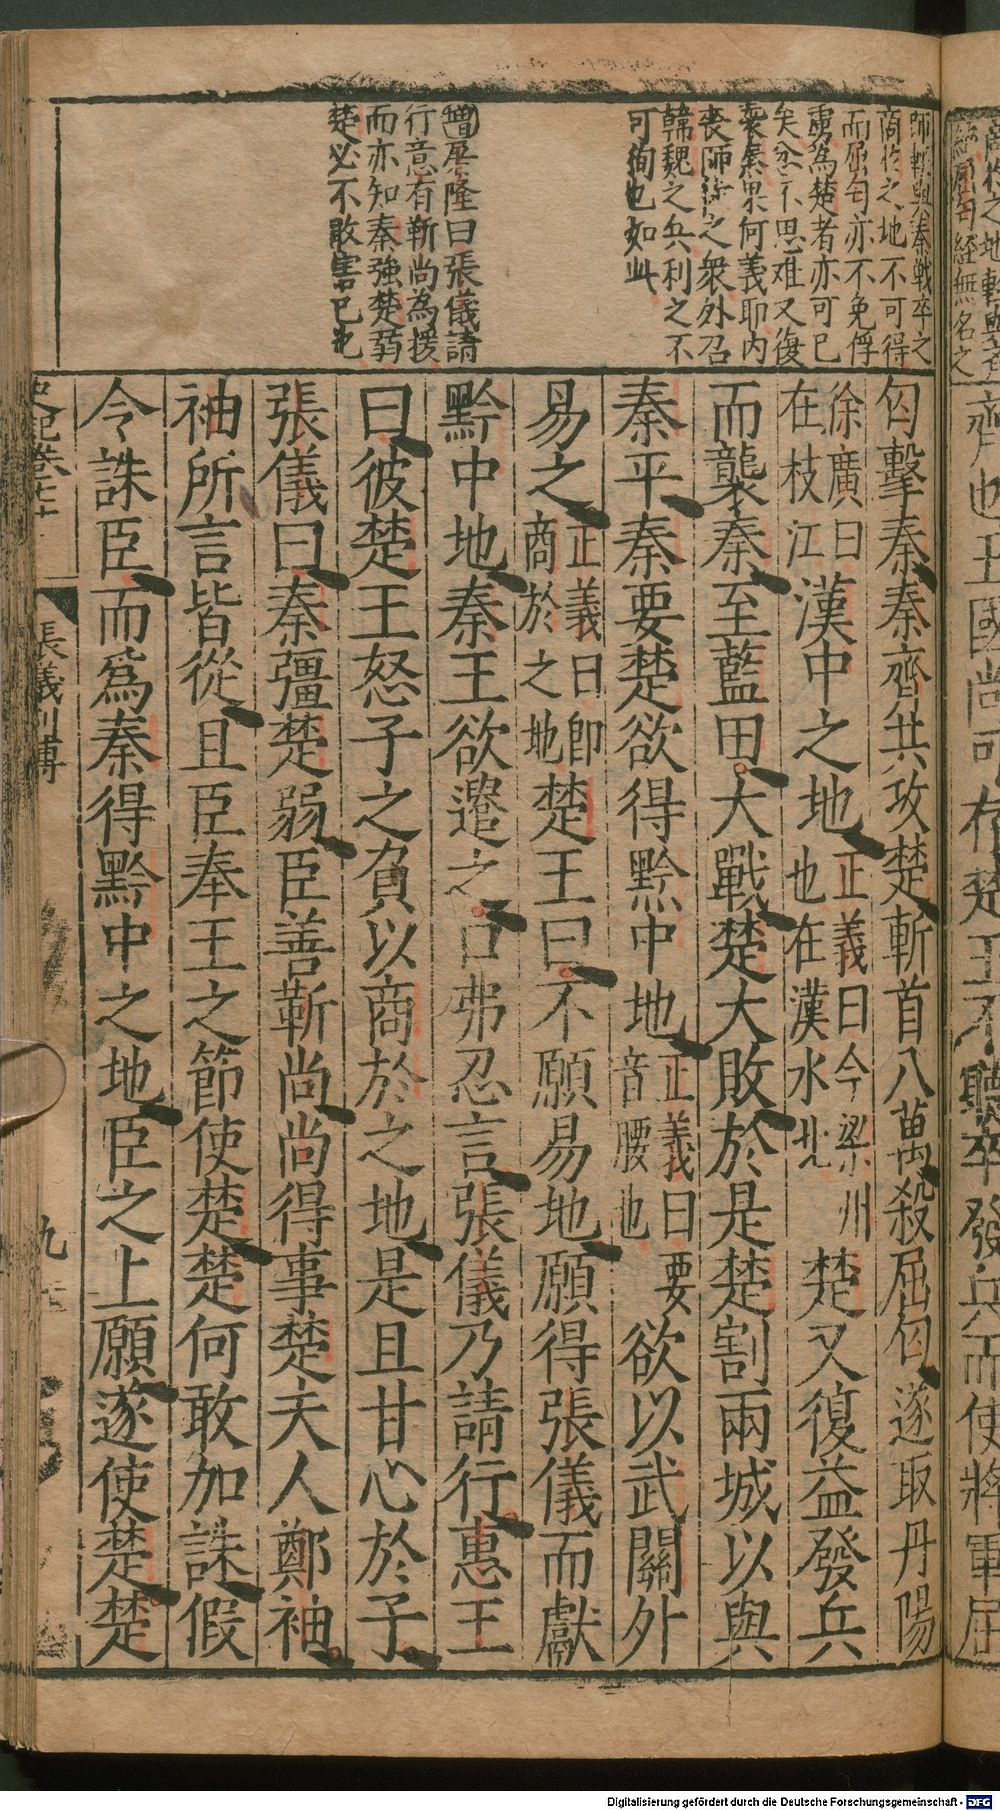 師輕與秦戰卒之
商於之地不可得
而屈匄亦不免俘
虜為楚者亦可已
矣忿不思难又復
襲秦果何義耶內
喪師徒之衆外召
韓魏之兵利之不
可徇也如此
增屠隆曰張儀請
行意有靳尚為援
而亦知秦強楚弱
楚必不敢害己也
匄擊秦秦齊共攻楚斬首八萬殺屈匄遂取丹陽
徐廣曰在枝江漢中之地正義曰今梁州也在漢水北楚又復益發兵
而襲秦至藍田大戰楚大敗於是楚割兩城以與
秦平秦要楚欲得黔中地正義曰要音腰也欲以武關外
易之正義曰即商於之地楚王曰不願易地願得張儀而獻
黔中地秦王欲遣之口弗忍言張儀乃請行惠王
曰彼楚王怒子之負以商於之地是且甘心於子
張儀曰秦彊楚弱臣善靳尚尚得事楚夫人鄭袖
袖所言皆從且臣奉王之節使楚楚何敢加誅假
令誅臣而爲秦得黔中之地臣之上願遂使楚楚
史記卷七十
張儀列傳
九
商於之地輕與
齊也王國尚可存楚王不聽卒發兵而使將軍屈
Digitalisierung gefördert durch die Deutsche Forschungsgemeinschaft - DFG